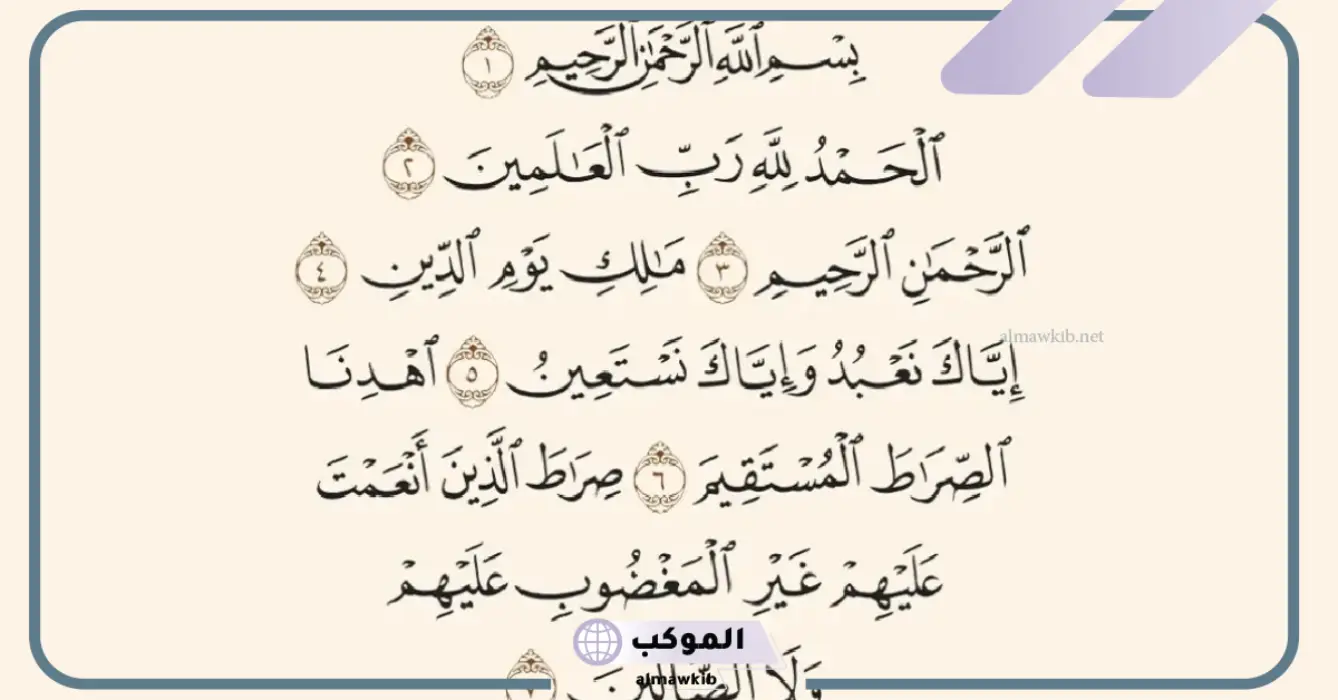 بِسْمِ ٱللَّهِ ٱلرَّحْمَٰنِ ٱلرَّحِيمِ ١
ٱلْحَمْدُ لِلَّهِ رَبِّ ٱلْعَٰلَمِينَ ٢
ٱلرَّحْمَٰنِ ٱلرَّحِيمِ ٣ مَٰلِكِ يَوْمِ ٱلدِّينِ ٤
almawkib.net
إِيَّاكَ نَعْبُدُ وَإِيَّاكَ نَسْتَعِينُ ٥ ٱهْدِنَا
ٱلصِّرَٰطَ ٱلْمُسْتَقِيمَ ٦ صِرَٰطَ ٱلَّذِينَ أَنْعَمْتَ
عَلَيْهِمْ غَيْرِ ٱلْمَغْضُوبِ عَلَيْهِمْ
الموكب
وَلَا ٱلضَّآلِّينَ ٧
almawkib